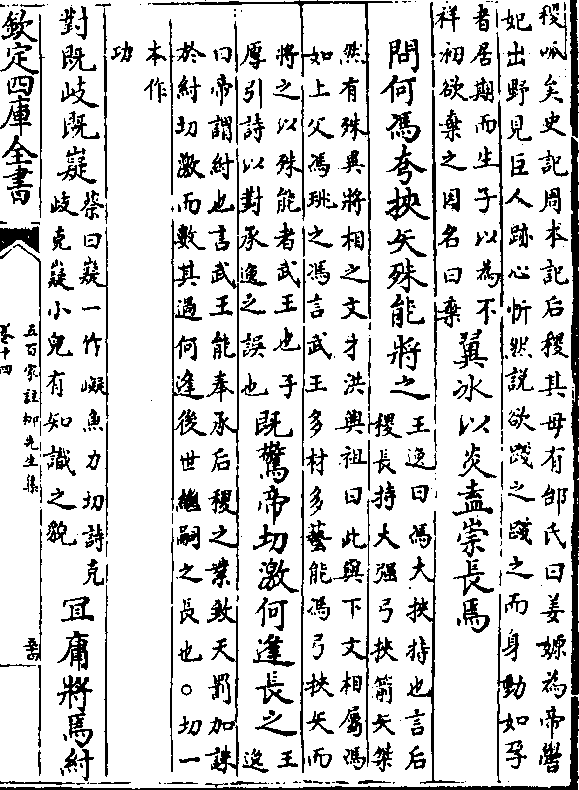 稷呱矣史記周本記后稷其母有邰氏曰姜嫄為帝嚳
妃出野見巨人跡心忻然説欲踐之踐之而身動如孕
者居期而生子以為不
祥初欲棄之因名曰棄
翼冰以炎盍崇長焉
問何馮夸挾矢殊能將之
王逸曰馮大挾持也言后
稷長持大强弓挾箭矢桀
然有殊異將相之文才洪興祖曰此與下文相屬馮
如上父馮珧之馮言武王多材多藝能馮弓挾矢而
將之以殊能者武王也子
厚引詩以對承逸之誤也
既驚帝切激何逢長之
王逸
曰帝謂紂也言武王能奉承后稷之業致天罰加誅
於紂切激而數其過何逢後世繼嗣之長也○切一
本作
功
對既岐既嶷
蔡曰嶷一作㠜魚力切詩克
岐克嶷小兒有知識之貌
宜庸將焉紂
欽定四庫全書
五百家註柳先生集
卷十四